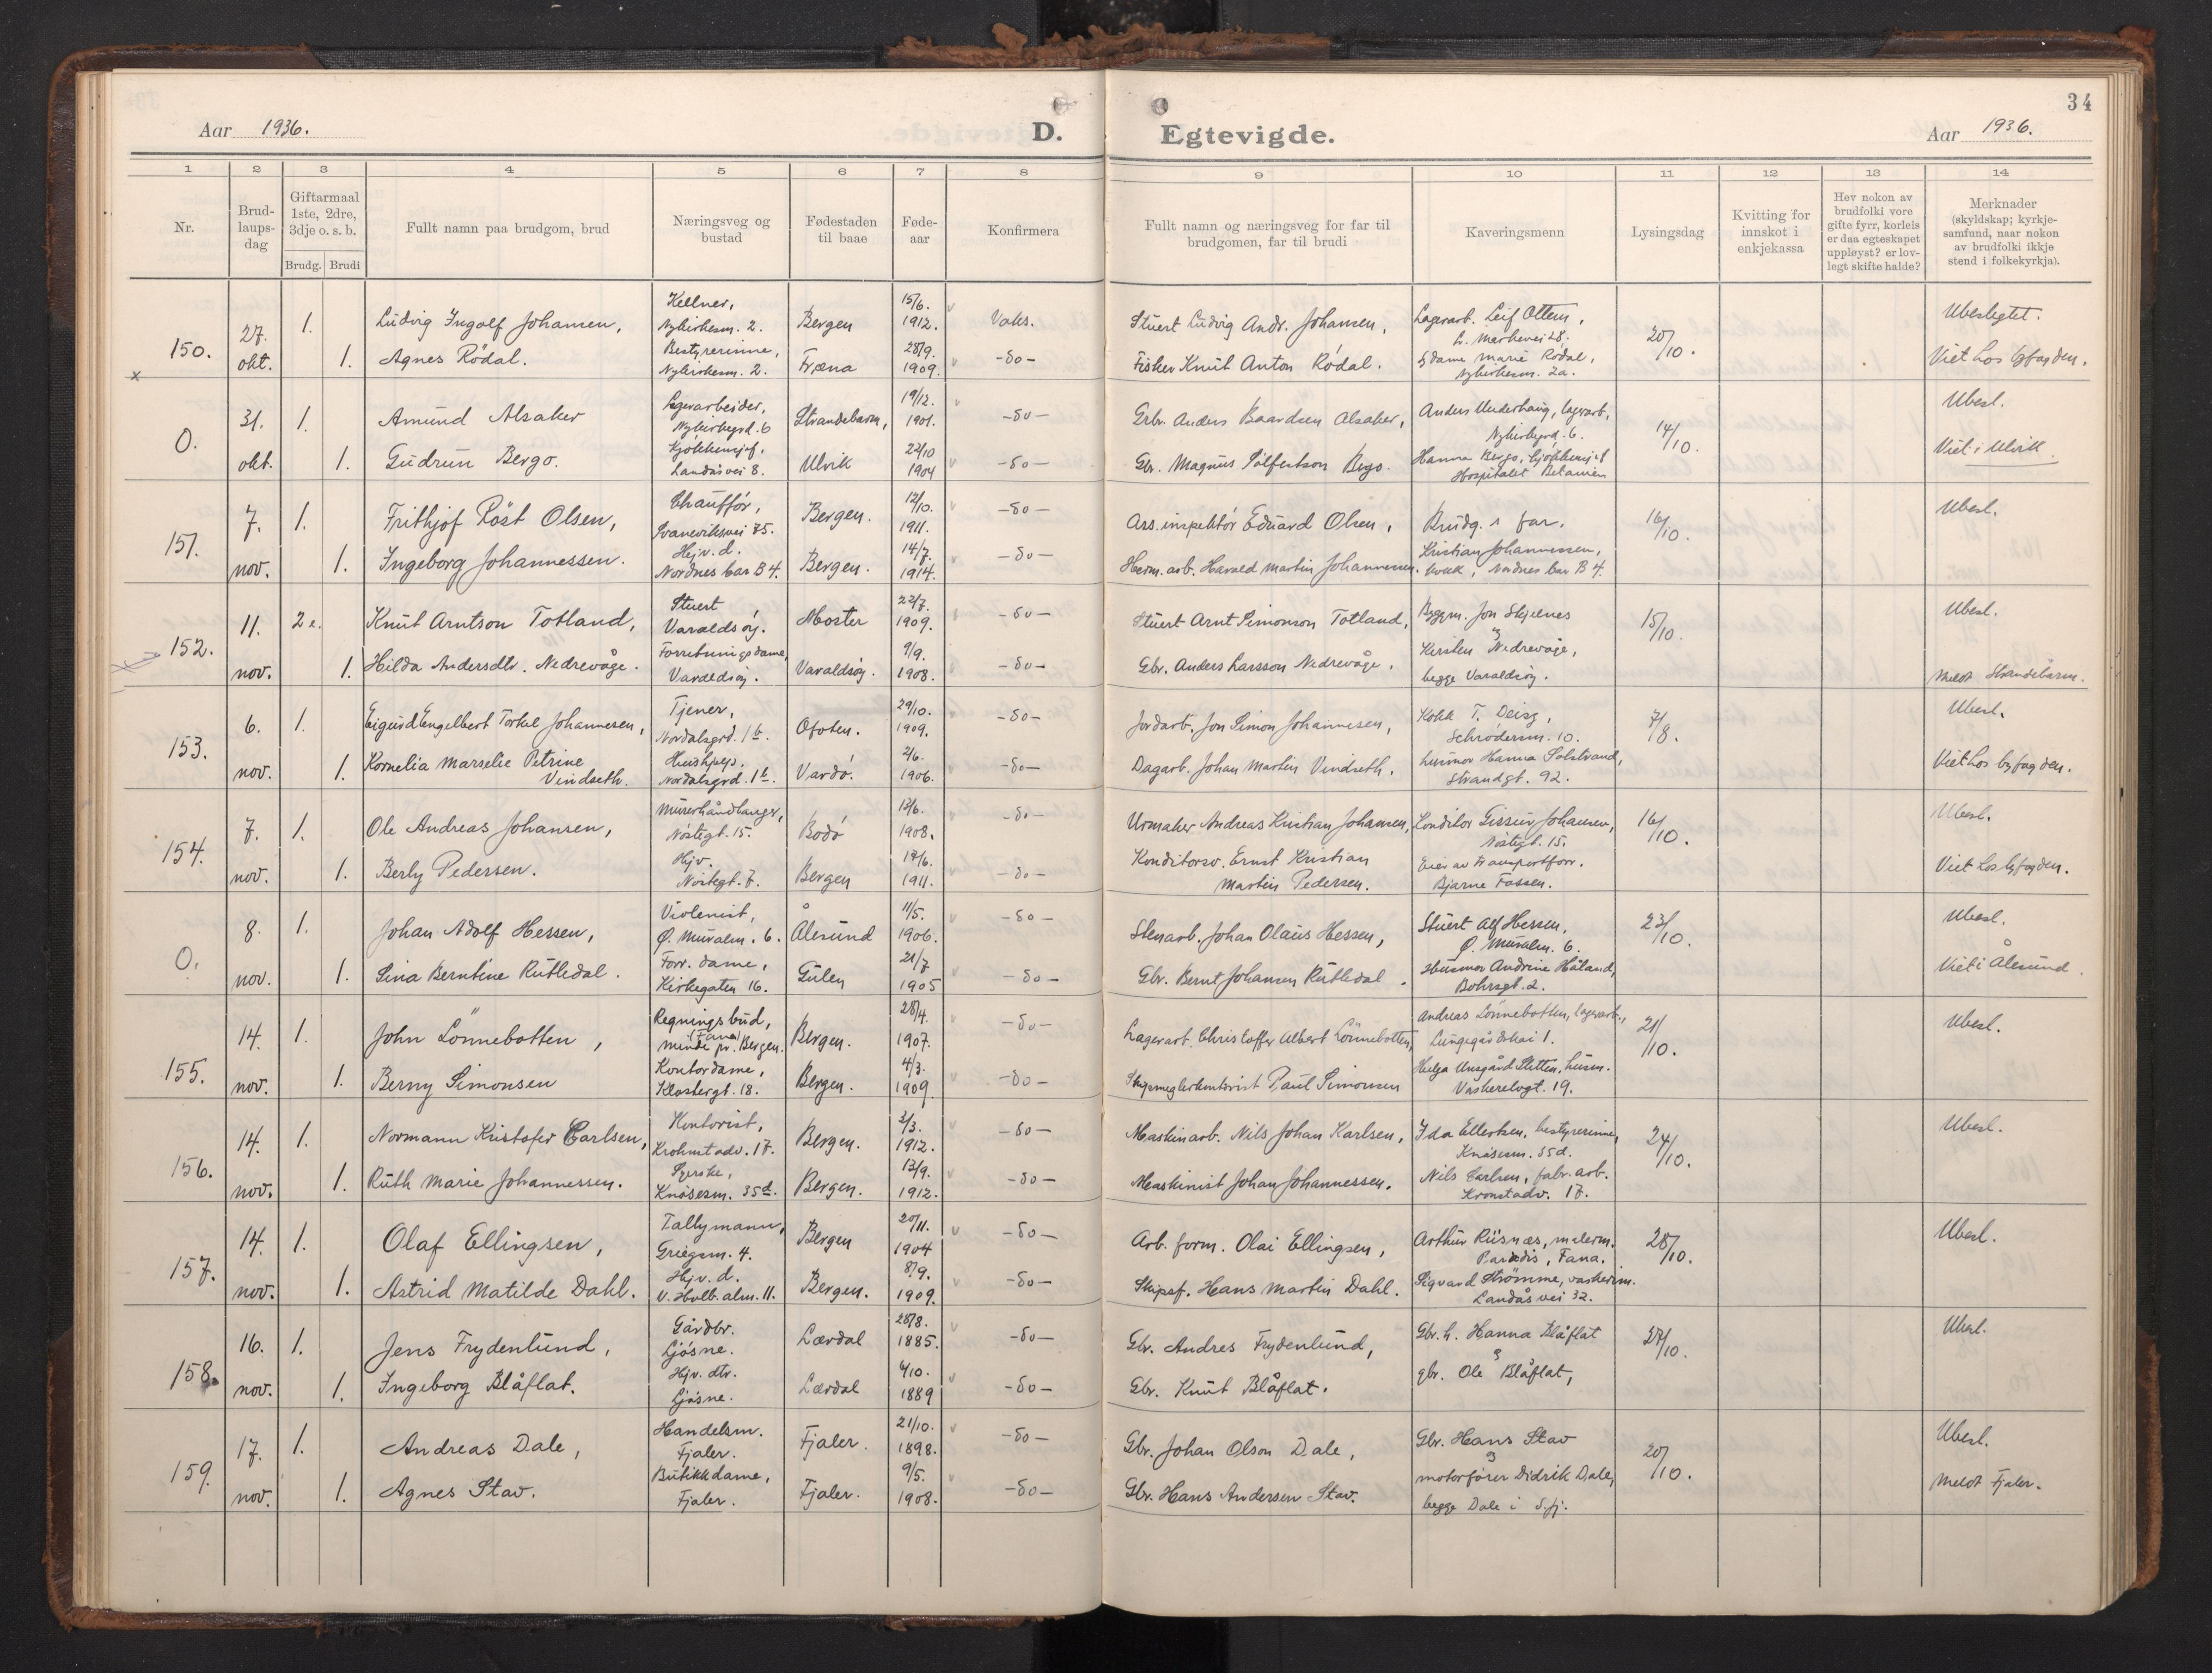 34
Aar 1936. D. Egtevigde. Aar 1936.
1 2 3 4 5 6 7 8 9 10 11 12 13 14
Nr.
Brud-
laups-
dag
Giftarmaal
1ste, 2dre,
3dje o. s. b.
Brudg. Brudi
Fullt namn paa brudgom, brud
Næringsveg og
bustad
Fødestaden
til baae
Føde-
aar
Konfirmera
Fullt namn og næringsveg for far til
brudgomen, far til brudi
Kaveringsmenn
Lysingsdag
Kvitting for
innskot i
enkjekassa
Hev nokon av
brudfolki vore
gifte fyrr, korleis
er daa egteskapet
uppløyst? er lov-
legt skifte halde?
Merknader
(skyldskap; kyrkje-
samfund, naar nokon
av brudfolki ikkje
stend i folkekyrkja).
150. 27. okt.
1. Ludvig Ingolf Johansen, Kellner, Nykirkesm. 2. Bergen 15/6. 1912. Vaks. Stuert Ludvig Andr. Johansen, Lagerarb. Leif Ottem, 20/10. Ubeslegtet.
1. Agnes Rödal. Bestyrerinne, Nykirkesm. 2. Fræna 28/9. 1909. -do- Fisker Knut Anton Rödal. Marie Rödal, Nykirkesm. 2a. Viet hos byfogden.
x
0. 31. okt.
1. Amund Alsaker Lagerarbeider, Nykirkegrd. 6 Strandebarm, 19/12. 1901. -do- Grbr. Anders Baardsen Alsaker, Anders Underhaug, lagerarb. Nykirkegrd. 6. 14/10. Ubesl.
1. Gudrun Bergo. Landåsvei 8. Ulvik 22/10 1904 -do- Gbr. Magnus Bergo. Hanna Bergo, Hospitalet Betanien Viet i Ulvik.
151. 7. nov.
1. Frithjof Röst Olsen, Chaufför, Svaneviksvei 75. Bergen. 12/10. 1911. -do- Ass. inspektör Eduard Olsen, Brudg.s far. 16/10. Ubesl.
1. Ingeborg Johannessen. Hjv. d. Nordnes bar B 4. Bergen. 14/7. 1914. -do- Herm. arb. Harald Martin Johannessen. Kristian Johannessen, kokk, Nordnes bar B 4.
152. 11. nov.
2 e. Knut Arntson Totland, Stuert Varaldsöy. Moster 22/7. 1909. -do- Stuert Arnt Simonson Totland, Byggm. Jon Skjelnes 15/10. Ubesl.
1. Hilda Andersdtr. Nedrevåge. Forretningsdame, Varaldsöy. Varaldsöy. 9/9. 1908. -do- Gbr. Anders Larsson Nedrevåge. Kirsten Nedrevåge, begge Varaldsöy. Meldt Strandebarm.
153. 6. nov.
1. Sigurd Engelbert Torkel Johannesen, Tjener, Nordalsgrd. 1b. Ofoten. 29/10. 1909. -do- Jordarb. Jon Simon Johannesen, Kokk T. Deisz, Schrödersm. 10. 7/8. Ubesl.
1. Kornelia Marselie Petrine Vindseth. Hushjelp. Nordalsgrd. 1b. Vardö. 2/6. 1906. -do- Dagarb. Johan Martin Vindseth. Husmor Hanna Solstrand, Strandgt. 92. Viet hos byfogden.
154. 7. nov.
1. Ole Andreas Johansen, Murerhåndlanger, Nöstegt. 15. Bodö 13/6. 1908. -do- Urmaker Andreas Kristian Johansen, Konditor Johansen, Nöstegt. 15. 16/10. Ubesl.
1. Berly Pedersen. Hjv. Nöstegt. 7. Bergen 17/6. 1911. -do- Konditorsv. Ernst Kristian Martin Pedersen. Eier av transportforr. Bjarne Fossen. Viet hos byfogden.
0. 8. nov.
1. Johan Adolf Hessen, Violenist, Ø. Muralm. 6. Ålesund 11/5. 1906. -do- Stenarb. Johan Olaus Hessen, Stuert Alf Hessen, Ø. Muralm. 6. 23/10. Ubesl.
1. Sina Berntine Rutledal. Forr. dame, Kirkegaten 16. Gulen 21/7 1905 -do- Gbr. Bernt Johansen Rutledal. Husmor Andrine Håland, Bohrsgt. 2. Viet i Ålesund.
155. 14. nov.
1. John Lönnebotten, Regningsbud, Minde pr. Bergen. (Fana) Bergen. 28/4. 1907. -do- Lagerarb. Christoffer Albert Lönnebotten, Andreas Lönnebotten, lagerarb., Lungegårdskai 1. 21/10. Ubesl.
1. Berny Simonsen Kontordame, Klostergt. 18. Bergen. 4/3. 1909. -do- Skipsmeglerkontorist Paul Simonsen Helga Sletten, husm. Vaskerelvgt. 19.
156. 14. nov.
1. Normann Kristofer Carlsen, Kontorist, Krohnstadv. 17. Bergen. 3/3. 1912. -do- Maskinarb. Nils Johan Karlsen, Ida Ellertsen, bestyrerinne, Knösesm. 35d. 24/10. Ubesl.
1. Ruth Marie Johannessen. Syerske, Knösesm. 35d. Bergen. 13/9. 1912. -do- Maskinist Johan Johannessen. Nils Carlsen, fabr. arb. Kronstadv. 17.
157. 14. nov.
1. Olaf Ellingsen, Tallymann, Griegsm. 4. Bergen 20/11. 1904 -do- Arb. form. Olai Ellingsen, Arthur Riisnæs, malerm. Paradis, Fana. 28/10. Ubesl.
1. Astrid Matilde Dahl. Hjv. d. V. Holb. alm. 11. Bergen. 8/9. 1909. -do- Skipsf. Hans Martin Dahl. Sigvard Strömme, vaskerim. Landåsvei 32.
158. 16. nov.
1. Jens Frydenlund, Gårdbr. Ljösne. Lærdal 28/8. 1885. -do- Gbr. Andres Frydenlund, Gbr. h. Hanna Blåflat 27/10. Ubesl.
1. Ingeborg Blåflat. Hjv. dtr. Ljösne. Lærdal 4/10. 1889 -do- Gbr. Knut Blåflat. gbr. Ole Blåflat,
159. 17. nov.
1. Andreas Dale, Handelsm. Fjaler. Fjaler. 21/10. 1898. -do- Gbr. Johan Olson Dale, Gbr. Hans Stav 20/10. Ubesl.
1. Agnes Stav. Butikkdame, Fjaler. Fjaler. 9/5. 1908. -do- Gbr. Hans Andersen Stav. motorförer Didrik Dale, begge Dale i S.fj. Meldt Fjaler.